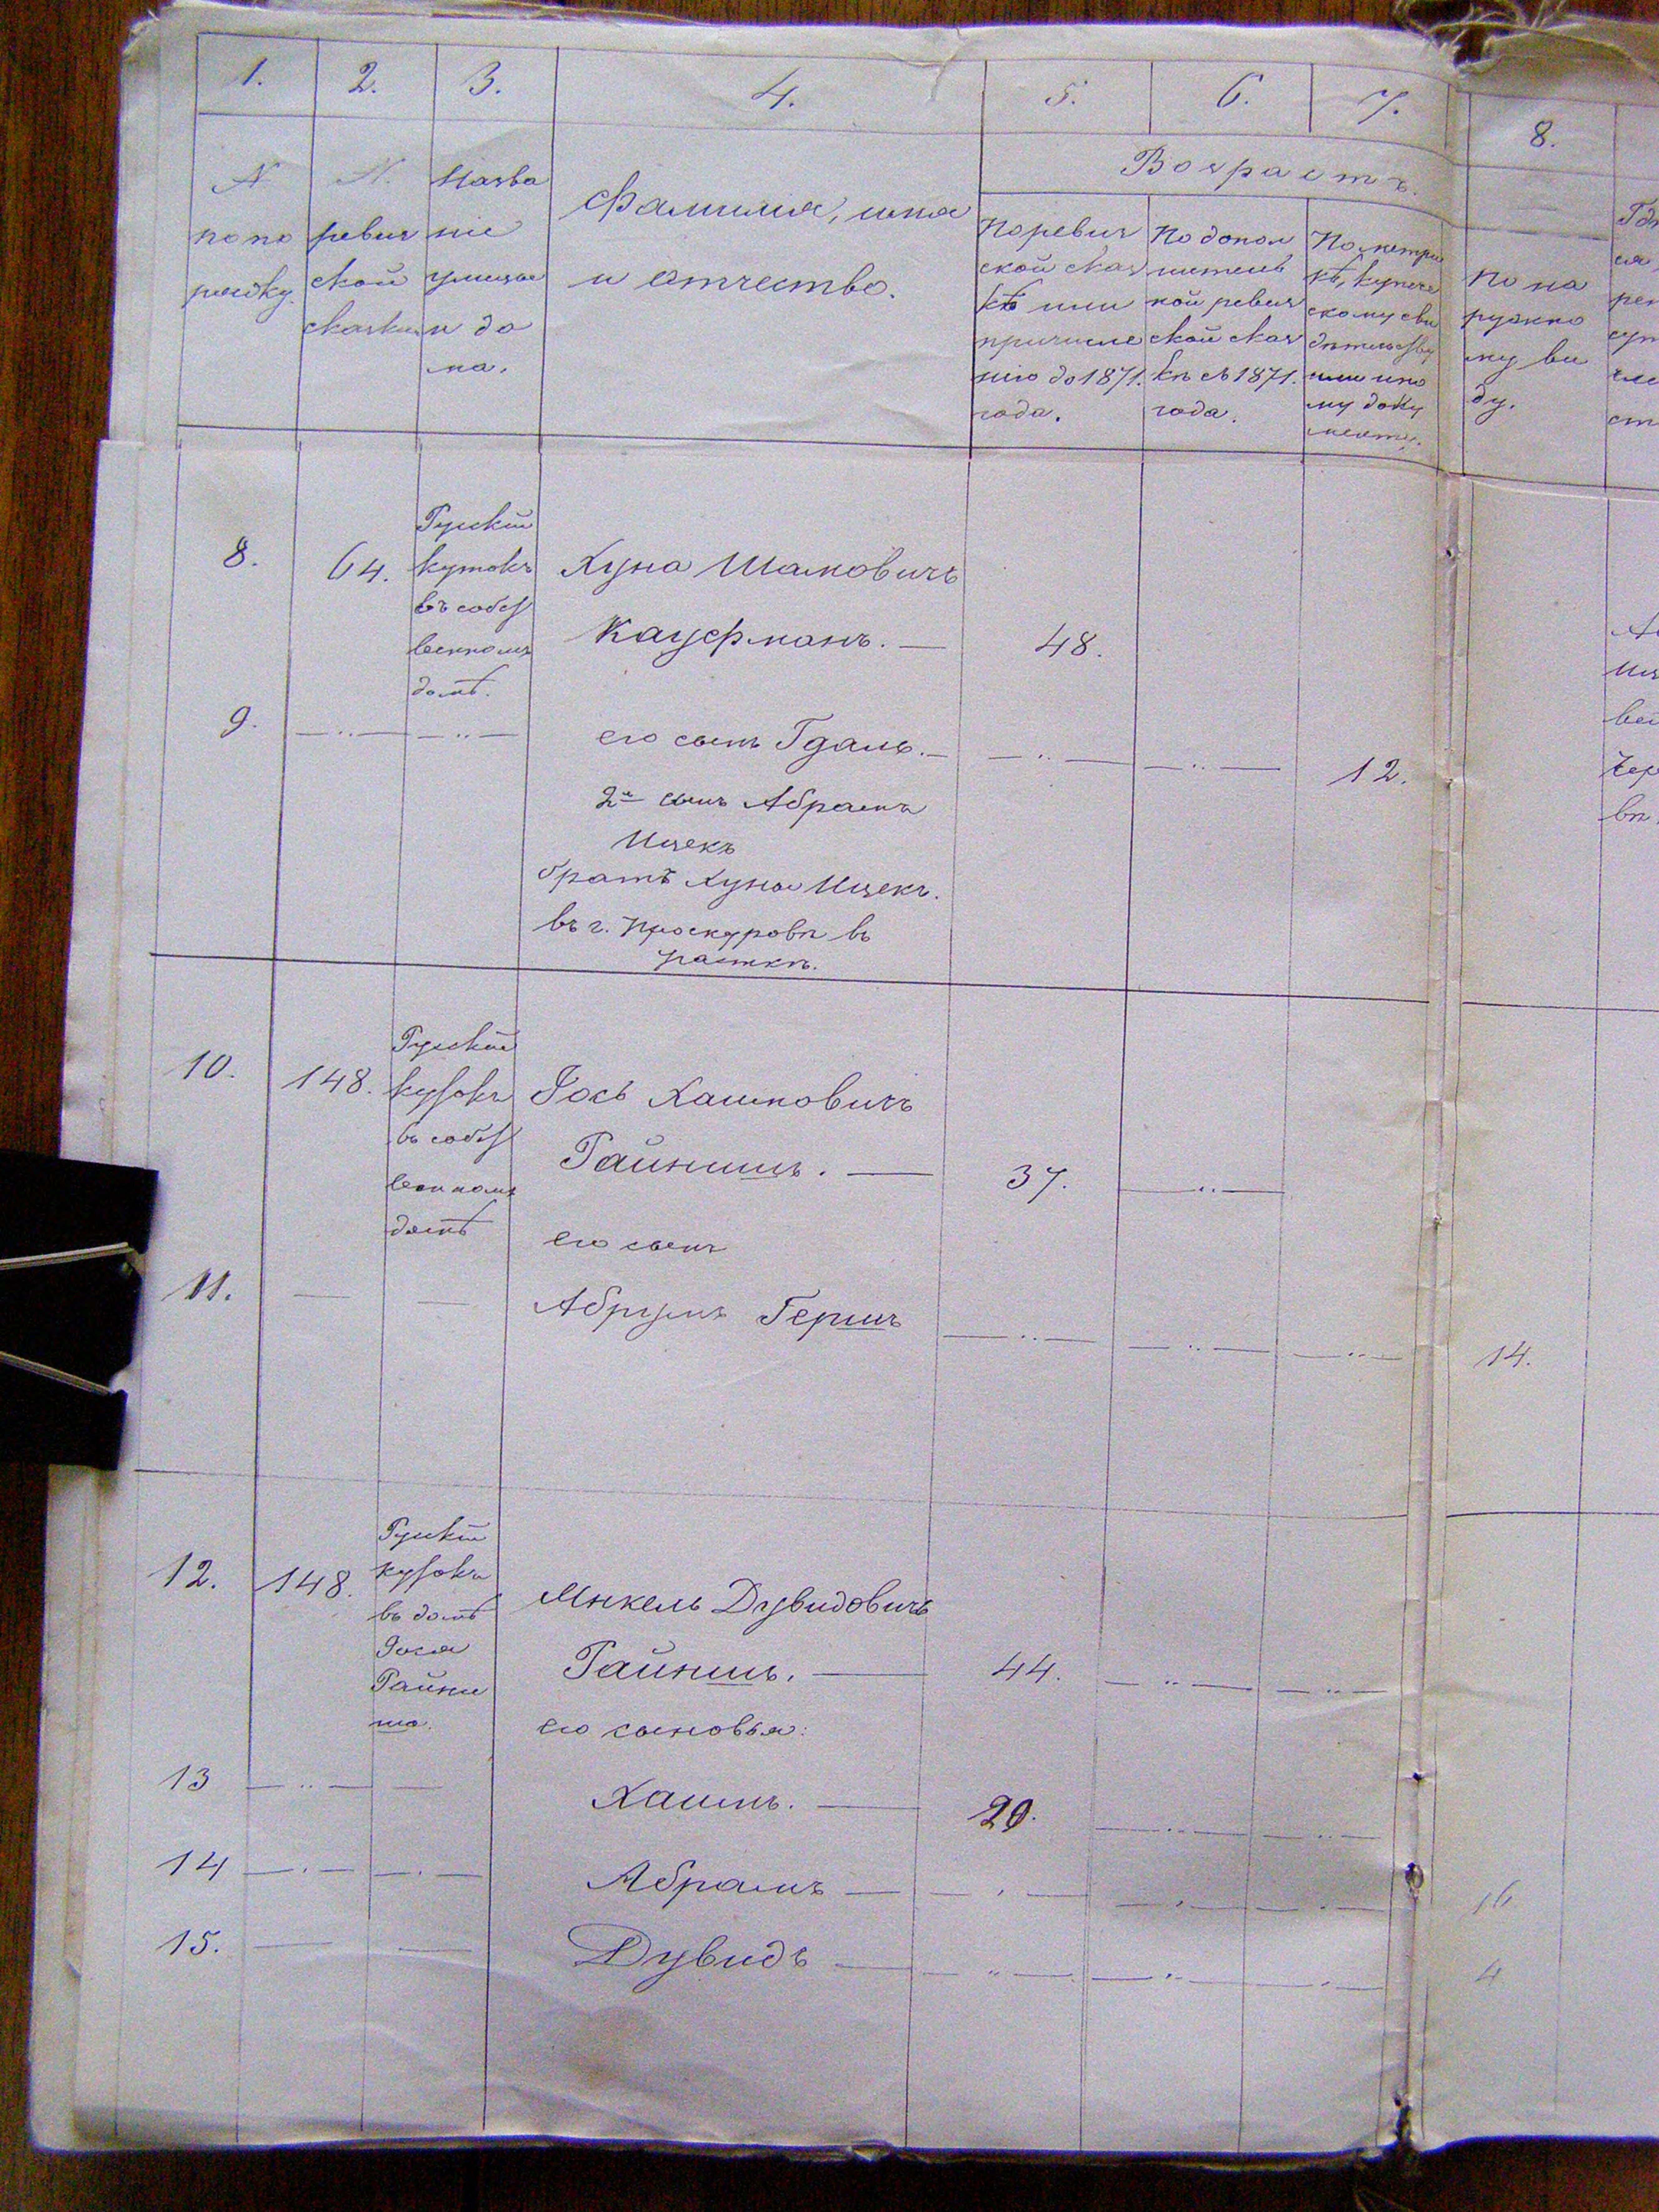 1. 2. 3. 4. 5. 6. 7. 8.
Возрастъ.
N
по по
рядку.
N.
ревиз
ской
сказки
Назва
ніе
улицы
и до
ма.
Фамилія, имя
и отчество.
По ревиз
ской сказ
кѣ или
причисле
нію до 1871.
года.
По допол
нитель
ной ревиз
ской сказ
кѣ съ 1871.
года.
По метри
кѣ, купече
скому сви
дѣтельству
или ино
му доку
менту.
По на
ружно
му ви
ду.
8. 64.
Рускій
кутокъ
въ собст
венномъ
домѣ.
Хуна Шамовичъ
Кауфманъ. — 48.
9. его сынъ Гдаль. — 12.
2й сынъ Абрамъ
Ицекъ
братъ Хуны Ицекъ.
въ г. Проскуровѣ въ
10. 148.
Рускій
кутокъ
въ собст
венномъ
домѣ
Іось Хаимовичъ
Райнишъ. — 37.
его сынъ
11. Абрумъ Гершъ 14.
12. 148.
Рускій
кутокъ
въ домѣ
Іося
Райни
ша.
Микель Дувидовичъ
Райнишъ. — 44.
его сыновья:
13 Хаимъ. — 20.
14 Абрамъ — 16
15. Дувидъ — 4